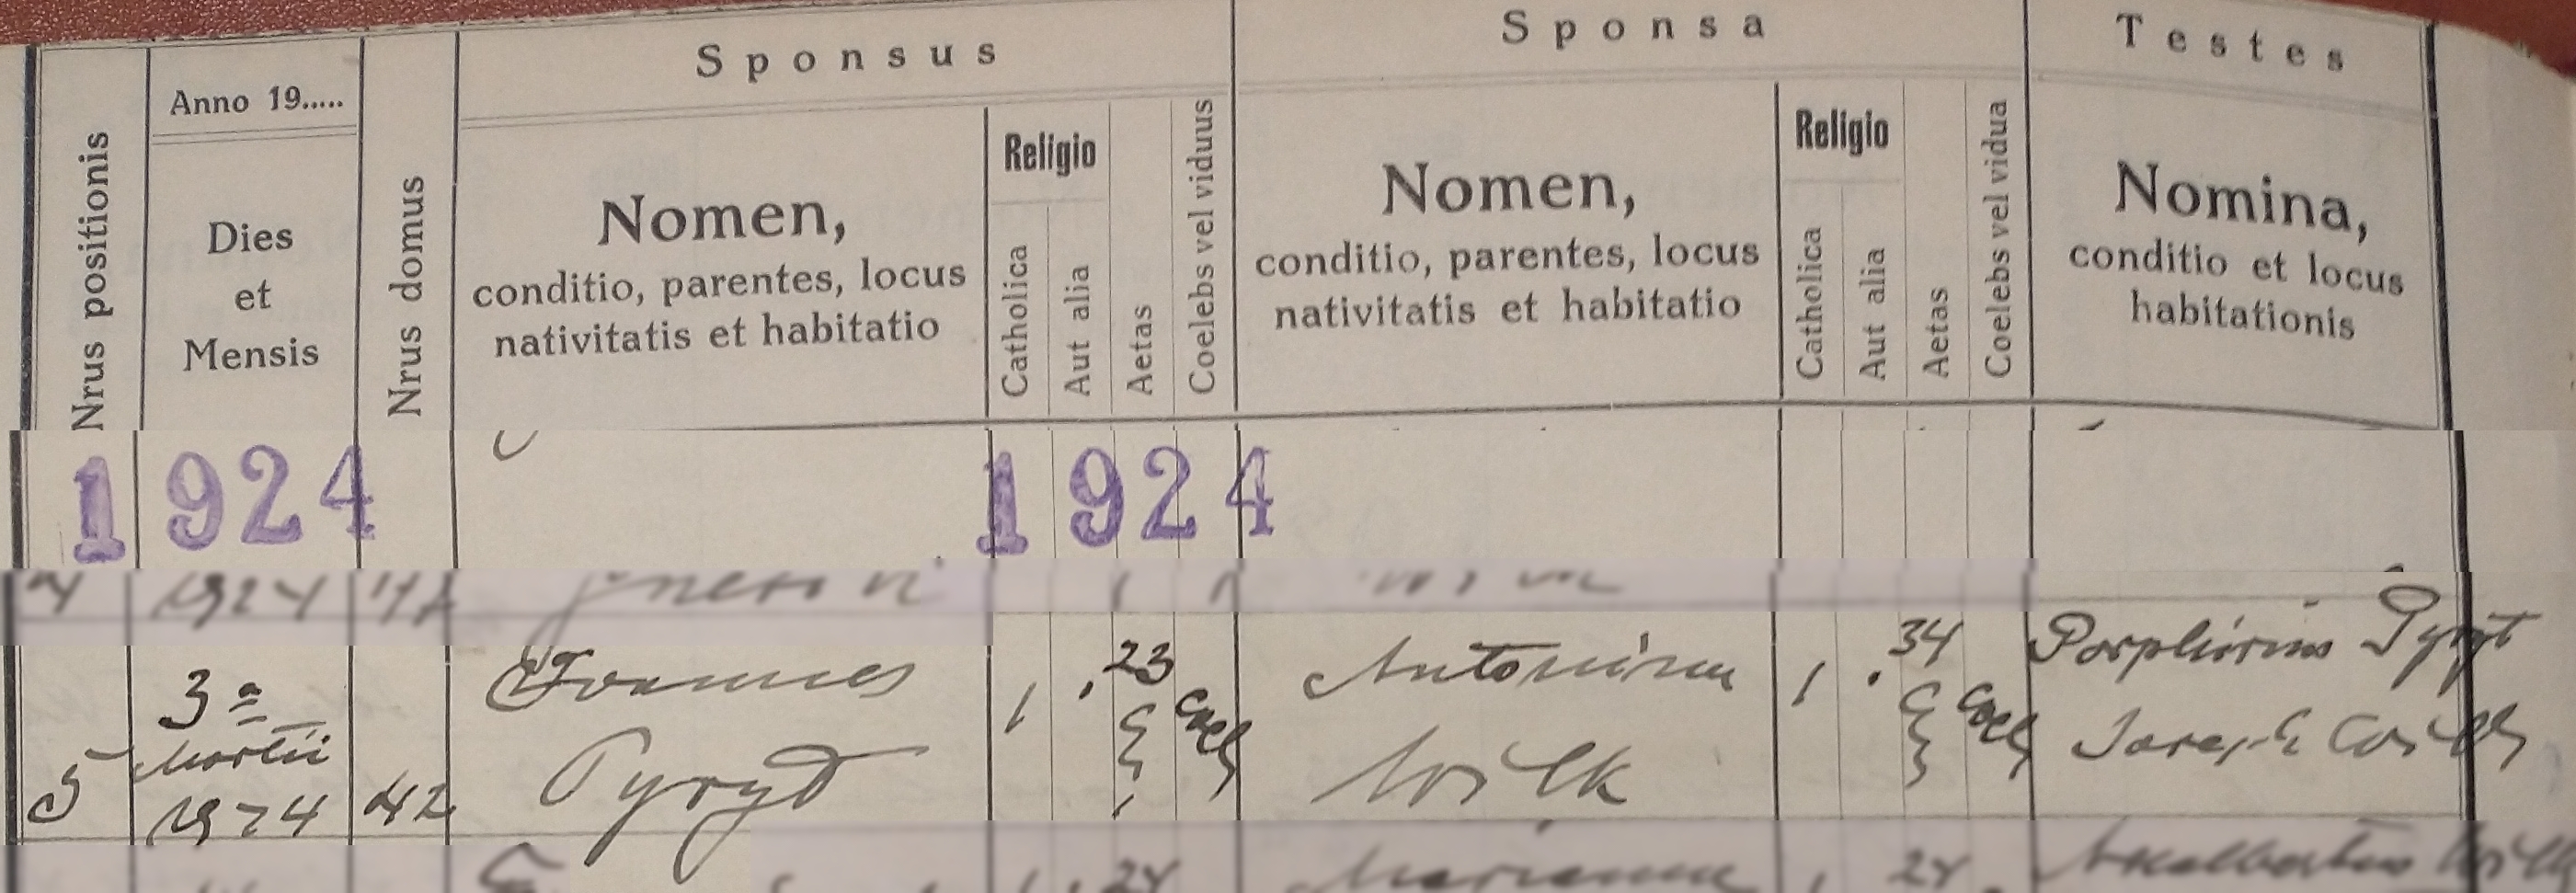 Sponsus
Sponsa
Testes
Nrus positionis
Anno 19.....
Dies
et
Mensis
Nrus domus
Nomen,
conditio, parentes, locus
nativitatis et habitatio
Religio
Catholica
Aut alia
Aetas
Coelebs vel viduus
Nomen,
conditio, parentes, locus
nativitatis et habitatio
Religio
Catholica
Aut alia
Aetas
Coelebs vel vidua
Nomina,
conditio et locus
habitationis
1924
1924
1924
5
3a
Martii
1924
42
Joannes
Pyryt
1
23
coel
Antonina
Wilk
1
34
coel
Porphirius Pyryt
Joseph
24
Marianna
24